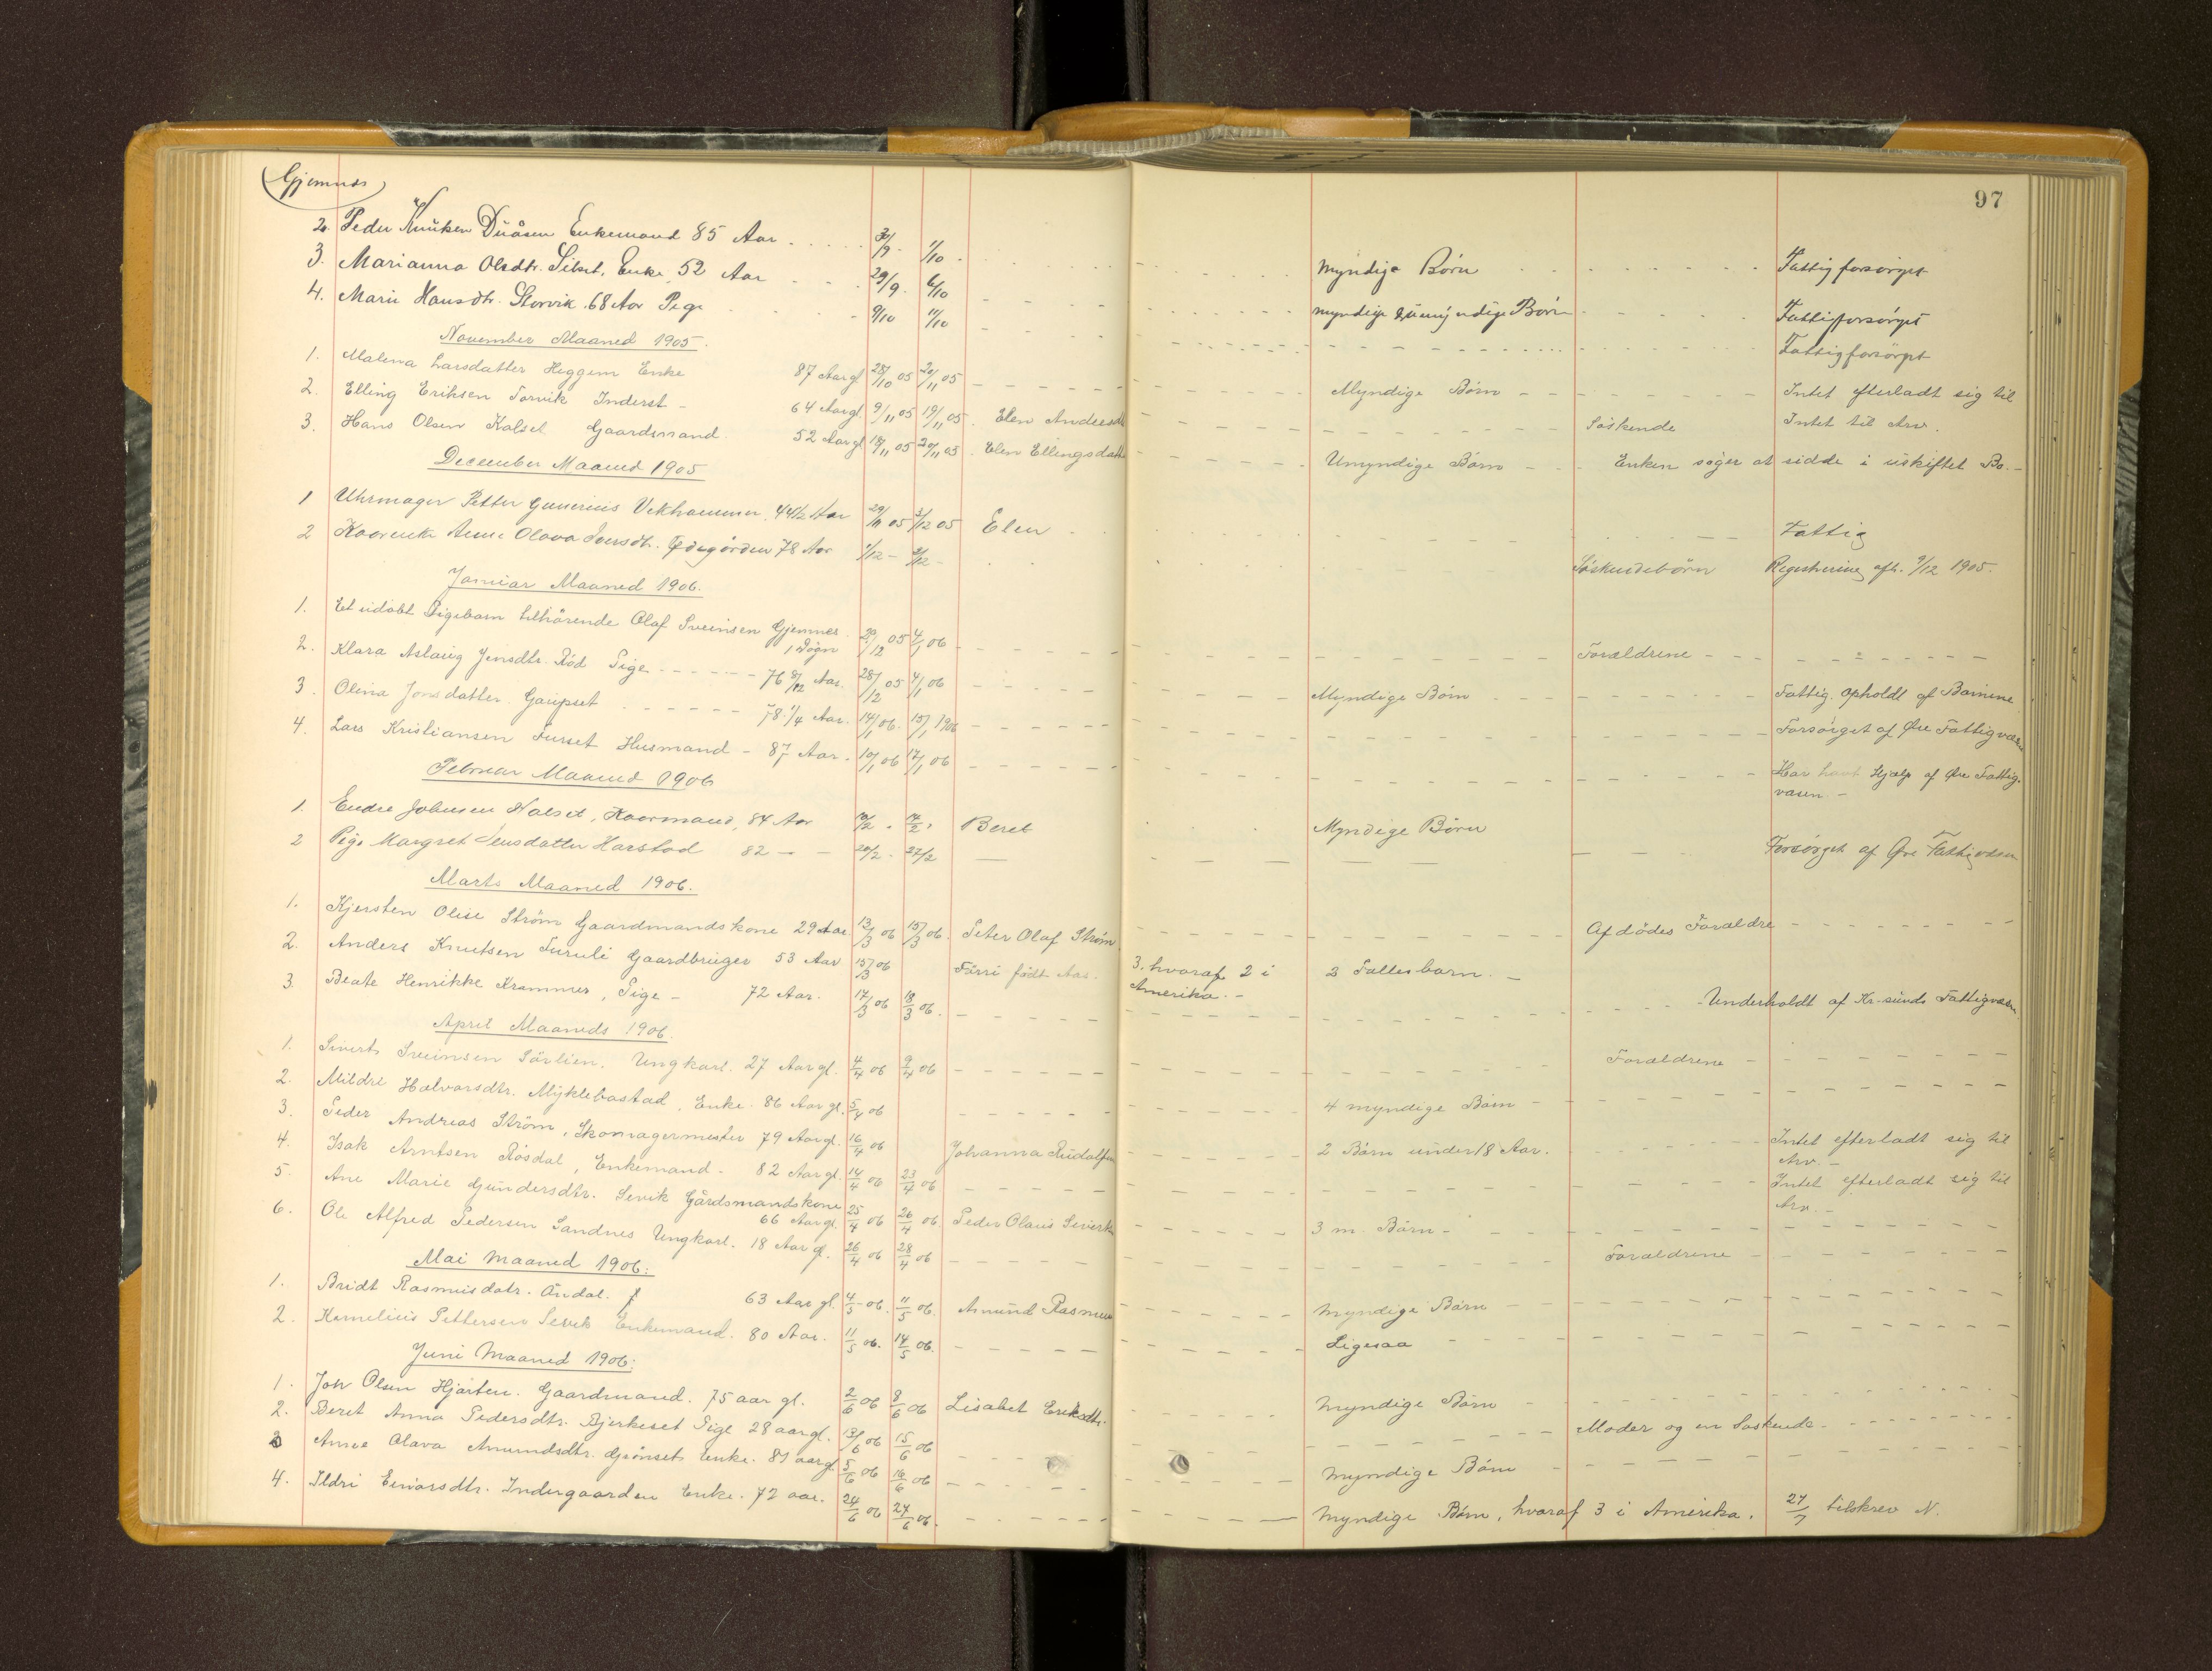 Gjemnes
97
2. Peder Knutsen Duåsen Enkemand 85 Aar 30/9 1/10 Myndige Børn Fattigforsørget
3. Marianna Olsdtr. Silset, Enke 52 Aar 29/9 6/10 myndige & umyndige Børn Fattigforsørget
4. Marie Hansdtr. Storvik 68 Aar Pige 9/10 11/10 Fattigforsørget
November Maaned 1905.
1. Malena Larsdatter Heggem Enke 87 Aar gl 28/10 05 20/11 05 Myndige Børn Intet efterladt sig til
2. Elling Eriksen Torvik Inderst 64 Aar gl. 9/11 05 19/11 05. Elen Andersdt Søskende Intet til Arv.
3. Hans Olsen Kalset Gaardsmand. 52 Aar gl 18/11 05 20/11 05. Elen Ellingsdatt Umyndige Børn Enken søger at sidde i uskiftet Bo.
December Maaned 1905
1 Uhrmager Petter Gunerius Vekhammer, 44 1/2 Aar 29/11 05 3/12 05 Elen Fattig
2 Kaarenke Anne Olava Iversdt. Ødegården 78 Aar 1/12 - 3/12 - Søskendebørn Registrering afh. 9/12 1905.
Januar Maaned 1906.
1. Et udøbt Pigebarn tilhørende Olaf Sveinsen Gjemnes
1 Døgn 29/12 05 4/1 06 Forældrene
2. Klara Aslaug Jensdtr. Rød Pige 76 8/12 Aar. 28/12 05 4/1 06 Myndige Børn Fattig. opholdt af Børnene
3. Olina Jonsdatter Gaupset 78 1/4 Aar. 14/1 06. 15/1 1906 Forsørget af Øre Fattigvæsen
4. Lars Kristiansen Furset Husmand - 87 Aar. 10/1 06 17/1 06 Har havt Hjælp af Øre Fattig-
væsen. -
Februar Maaned 1906
1. Endre Johnsen Kalset, Kaarmand, 84 Aar 10/2 14/2 Beret Myndige Børn
2 Pige Margret Jensdatter Harstad 82 - - 20/2 - 27/2 Forsørget af Øre Fattigvæsen
Marts Maaned 1906.
1. Kjersten Olise Strøm Gaardmandskone 29 Aar 12/3 06 15/3 06. Peter Olaf Strøm Afdødes Forældre
2. Anders Knutsen Furuli Gaardbruger 53 Aar 15/3 06 født Aas. 3, hvoraf 2 i 2 Fællesbarn. -
Amerika. -
3. Beate Henrikke Krammer, Pige - 72 Aar. 17/3 06 18/3 06. Underholdt af Kr. sunds Fattigvæsen
April Maaneds 1906.
1. Siverts Sveinsen Sørlien. Ungkarl. 27 Aar gl. 4/4 06 9/4 06 Forældrene
2. Mildri Halvorsdtr. Myklebostad, Enke. 86 Aar gl. 5/4 06 4 myndige Børn
3. Peder Andreas Strøm, Skomagermester 79 Aar gl. 16/4 06 Johanna Rudolfin 2 Børn under 18 Aar. Intet efterladt sig til
Arv. -
4. Isak Arntsen Røsdal, Enkemand - 82 Aar gl. 14/4 06 23/4 06 Intet efterladt sig til
Arv. -
5. Ane Marie Gundersdtr. Sevik Gårdsmandskone
66 Aar gl. 25/4 06 26/4 06. Peder Olaus Siverts 3 m. Børn -
6. Ole Alfred Pedersen Sandnes Ungkarl. 18 Aar gl. 26/4 06 28/4 06 Forældrene
Mai Maaned 1906.
1. Bridt Rasmusdatr. Ørdal. 63 Aar gl. 4/5 - 06. 11/5 06. Amund Rasmus Myndige Børn
2. Kornelius Pettersen Sevik Enkemand. 80 Aar. 11/5 06. 14/5 06. Ligesaa
Juni Maaned 1906.
1. Joh Olsen Hjorten. Gaardmand. 75 aar gl. 2/6 06 8/6 06 Lisabet Eriksdtr. Myndige Børn
2. Beret Anna Pedersdtr. Bjerkeset Pige 28 aar gl. 13/6 06 15/6 06 Moder og en Søskende
3 Anne Olava Amundsdtr. Grønset Enke. 81 aar gl 5/6 06 16/6 06 Myndige Børn
4. Ildri Einarsdtr. Indergaarden Enke. 72 aar. 24/6 06 27/6 06. Myndige Børn, hvoraf 3 i Amerika. 27/7 tilskrev N.